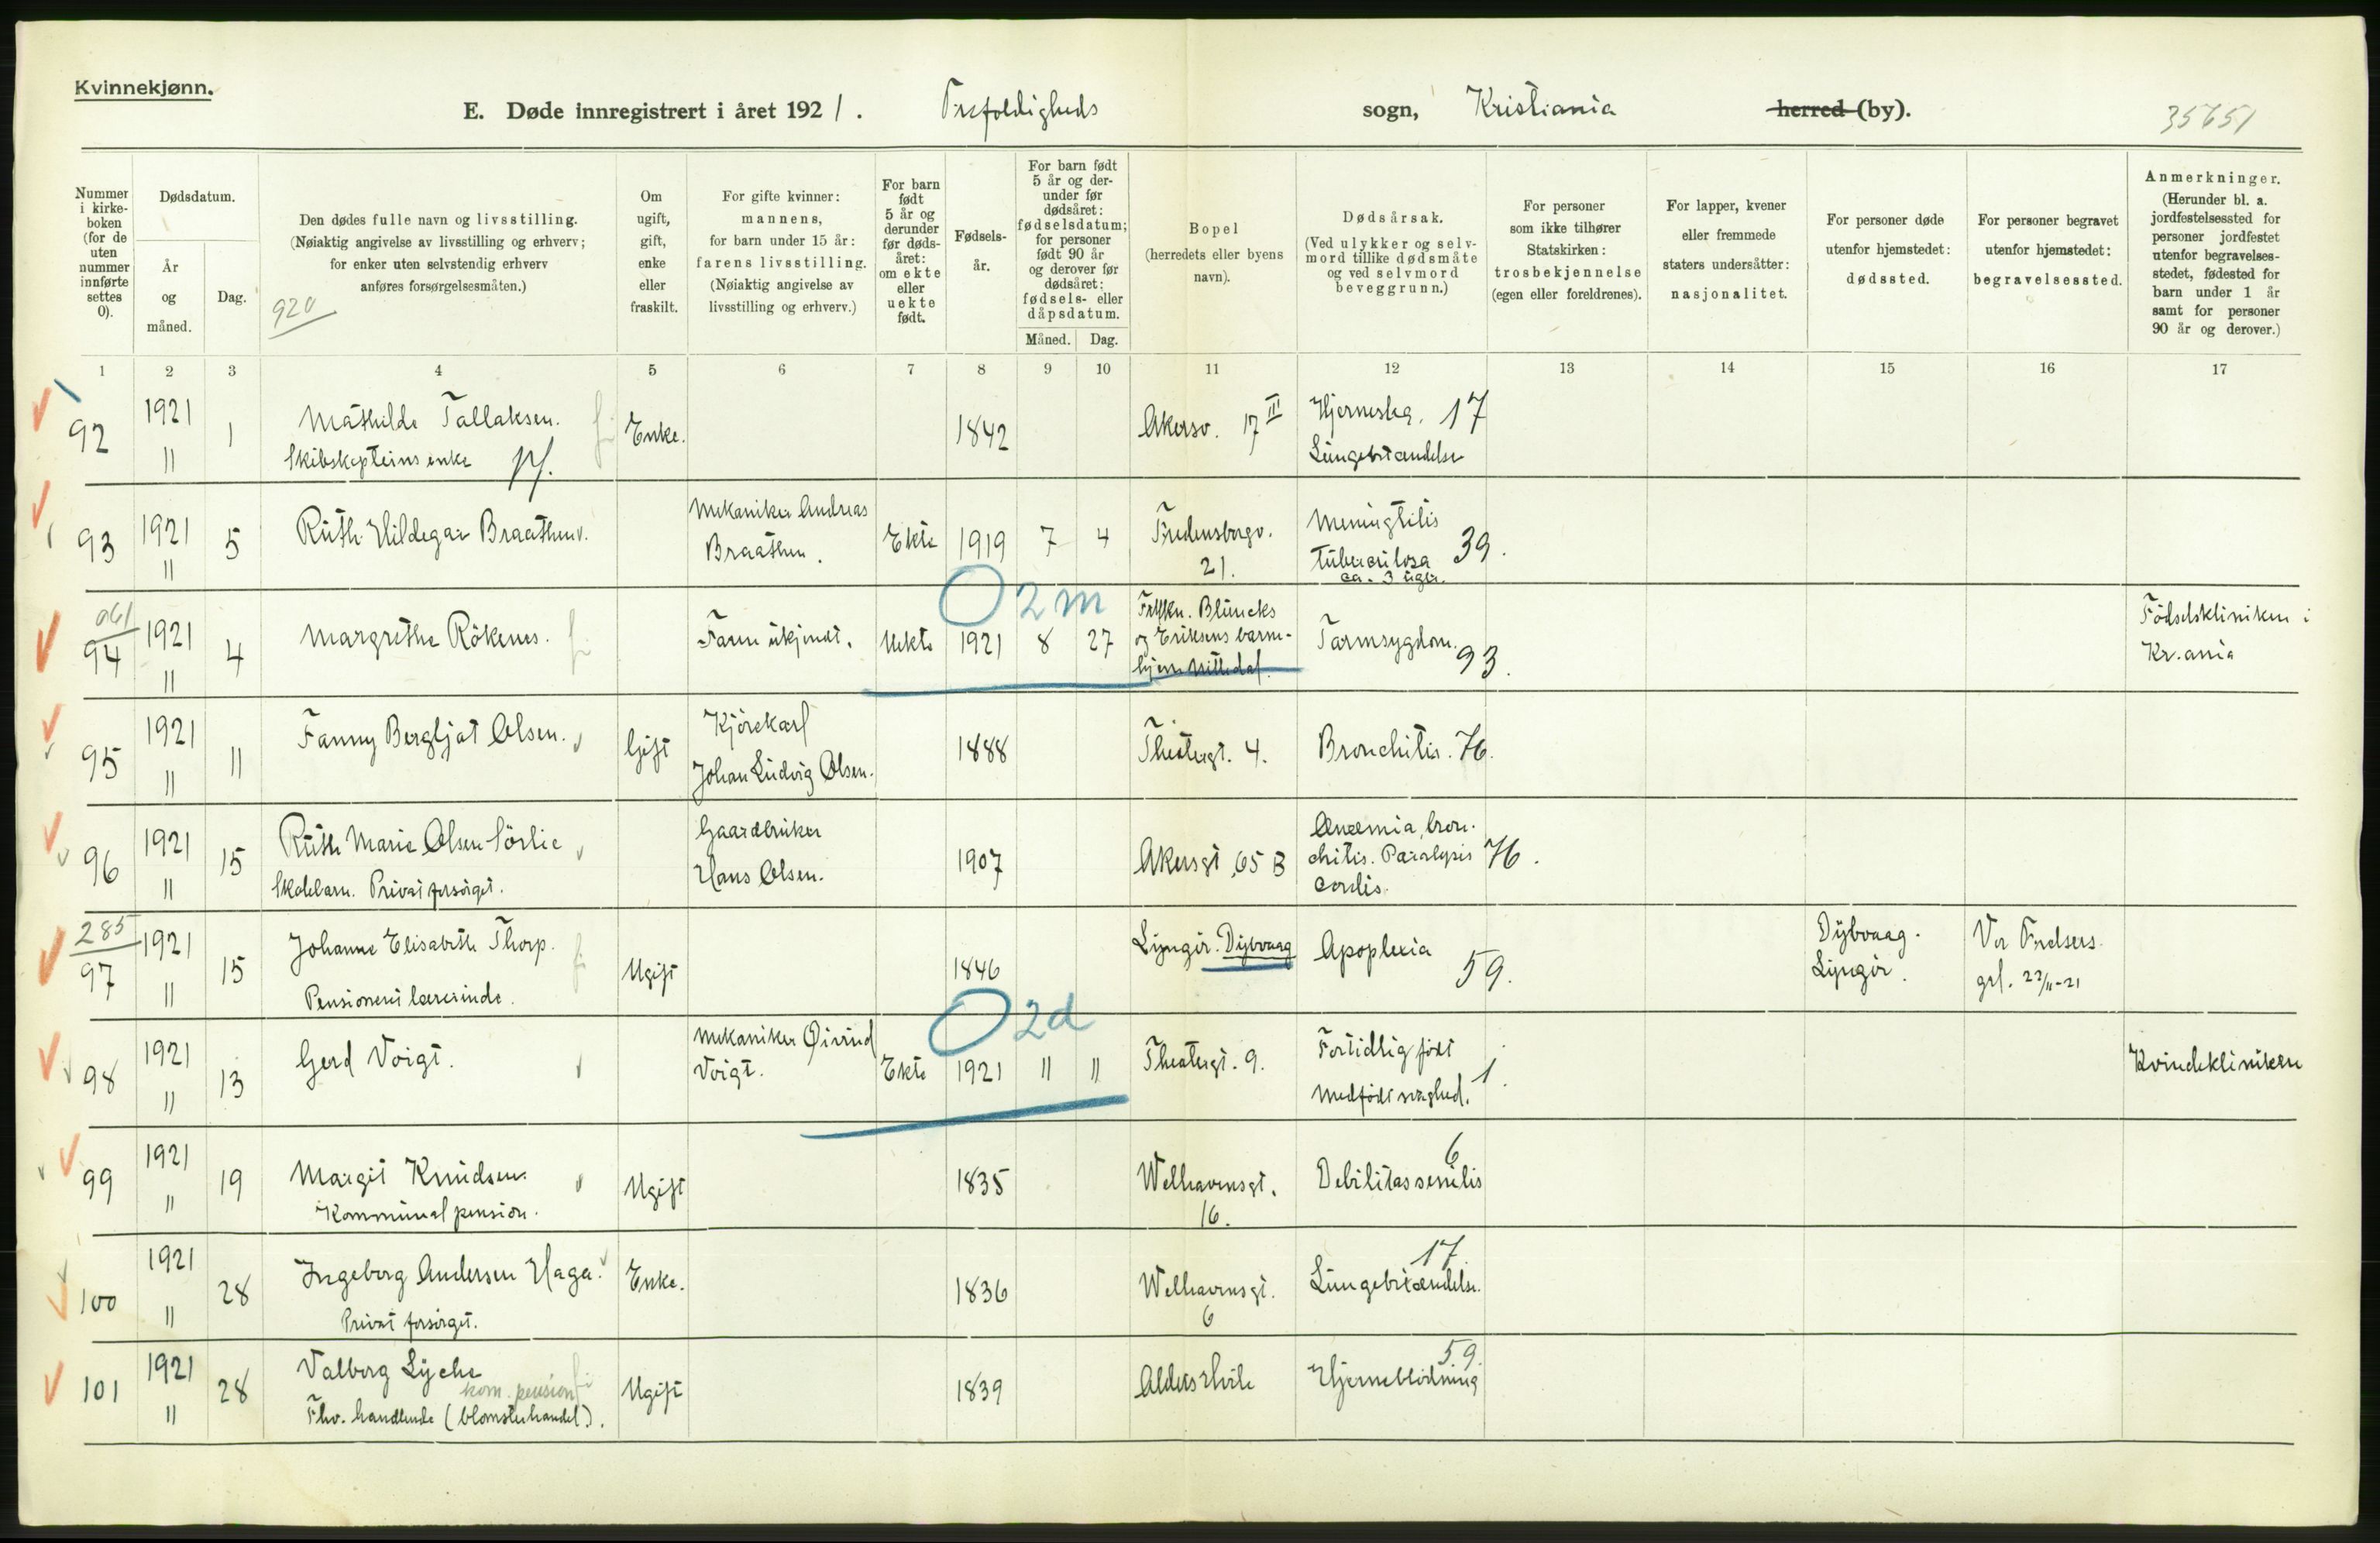 Kvinnekjønn.
E. Døde innregistrert i året 1921. Trefoldigheds sogn, Kristiania herred (by).
35651
Nummer i kirke-boken (for de uten nummer innførte settes 0).
Dødsdatum.
År og måned.
Dag.
Den dødes fulle navn og livsstilling.
(Nøiaktig angivelse av livsstilling og erhverv;
for enker uten selvstendig erhverv
anføres forsørgelsesmåten.)
920
Om ugift, gift, enke eller fraskilt.
For gifte kvinner:
mannens,
for barn under 15 år:
farens livsstilling.
(Nøiaktig angivelse av
livsstilling og erhverv.)
For barn født 5 år og derunder før dødsåret: om ekte eller uekte født.
Fødsels-år.
For barn født 5 år og der-under før dødsåret: fødselsdatum; for personer født 90 år og derover før dødsåret: fødsels- eller dåpsdatum.
Måned. Dag.
Bopel
(herredets eller byens
navn).
Dødsårsak.
(Ved ulykker og selv-
mord tillike dødsmåte
og ved selvmord
beveggrunn.)
For personer
som ikke tilhører
Statskirken:
trosbekjennelse
(egen eller foreldrenes).
For lapper, kvener
eller fremmede
staters undersåtter:
nasjonalitet.
For personer døde
utenfor hjemstedet:
dødssted.
For personer begravet
utenfor hjemstedet:
begravelsessted.
Anmerkninger.
(Herunder bl. a.
jordfestelsessted for
personer jordfestet
utenfor begravelses-
stedet, fødested for
barn under 1 år
samt for personer
90 år og derover.)
1 2 3 4 5 6 7 8 9 10 11 12 13 14 15 16 17
92 1921 11 1 Mathilde Tallaksen.
Skibskapteins enke pf.
Enke. 1842 Akersv. 17 III
Hjerneslag. 17
Lungebetændelse
93 1921 11 5 Ruth Hildegar Braathen.
Mekaniker Andreas
Braathen.
Ekte 1919 7 4 Fredensborgv.
21.
Meningtitis
tuberculosa 39.
ca. 3 uger.
O 2 m
961
94 1921 11 4 Margrethe Rökenes.
Faren ukjendt. Uekte 1921 8 27
Frkn. Bluncks
og Eriksens barne-
hjem Nittedal.
Tarmsygdom. 93.
Födselskliniken i
Kr.ania
95 1921 11 11 Fanny Bergljot Olsen.
Gift Kjörekarl
Johan Ludvig Olsen.
1888 Theatergt. 4. Bronchitis. 76.
96 1921 11 15 Ruth Marie Olsen Sörlie
Skolebarn. Privat forsörget.
Gaardbruker
Hans Olsen.
1907 Akersgt 65 B
Anæmia, bron-
chitis. Paralysis 76.
cordis.
285
97 1921 11 15 Johanne Elisabeth Thorp.
Pensionert lærerinde.
Ugift 1846 Lyngör. Dybvaag Apoplexia 59.
Dybvaag.
Lyngör.
Vor Frelsers
grl. 22/11-21
O 2 d
98 1921 11 13 Gerd Voigt.
Mekaniker Öivind
Voigt.
Ekte 1921 11 11 Theatergt. 9.
Fortidlig födt
Medfödt svaghed. 1.
Kvindekliniken
99 1921 11 19 Margit Knudsen.
Kommunal pension.
Ugift 1835 Welhavensgt.
16.
6
Debilitas senilis
100 1921 11 28 Ingeborg Andersen Haga.
Privat forsörget.
Enke. 1836 Welhavensgt.
6
17.
Lungebetændelse.
101 1921 11 28 Valborg Lyche
kom. pension
Fhv. handlende (blomsterhandel).
Ugift 1839 Alders Hvile
59.
Hjerneblödning